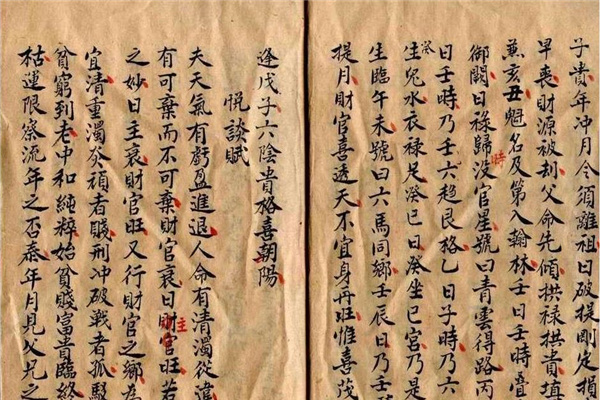 子貴年沖月令須離祖日破提剛定損
早喪財源被刼父命先傾拱祿拱貴填
亥丑魁名及第入翰林壬日壬時疊
御闕日祿歸時沒官星號曰青雲得路丙
日壬時乃壬六趨艮格乙日子時乃六
癸生兒水衣祿足癸巳日癸坐巳宮乃是
生臨午未號曰六馬同鄉壬辰日乃壬
提月財官喜透天不宜身再旺惟喜茂
逢戊子六陰貴格喜朝陽
悅談賦
夫天氣有虧盈進退人命有清濁從違
有可棄而不可棄財官衰日主財官旺若
之妙日主衰財官旺又行財官之鄉為
宜清重濁分頑者賤刑冲破戰者孤駁
貧窮到老中和純粹始貧賤富貴臨終
枯運限察流年之否泰年月見父兄之